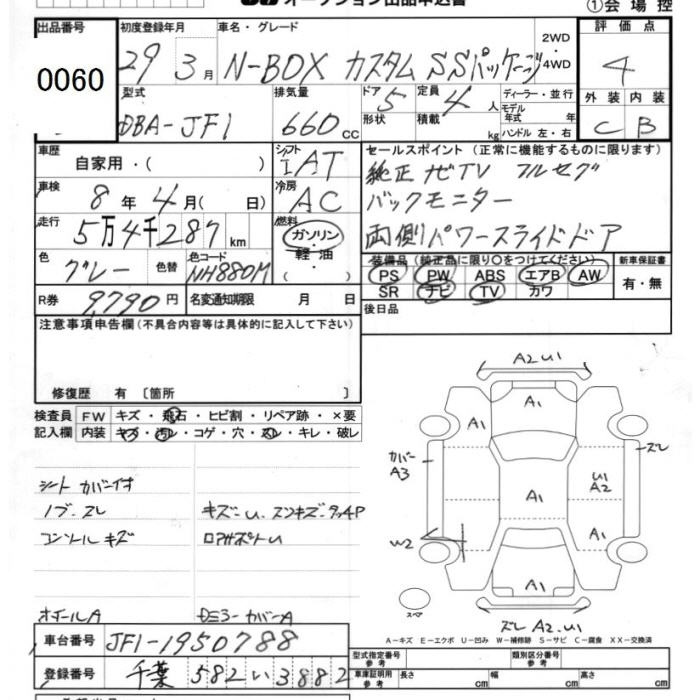 オークション出品申込書 ①会場控
出品番号 初度登録年月 車名・グレード 2WD・4WD 評価点
0060 29年 3月 N-BOX カスタム SSパッケージ 4
型式 排気量 ドア 定員 ディーラー・並行 外装 内装
DBA-JF1 660cc 5 4人 形状 積載 kg モデル年式 年 ハンドル 左・右 C B
車歴 自家用・( ) シフト IAT セールスポイント (正常に機能するものに限ります)
純正ナビTV フルセグ
車検 8年 4月( 日) 冷房 AC バックモニター
走行 5万4千287km 燃料 ガソリン・軽油・( ) 両側パワースライドドア
色 グレー 色替 色コード NH880M 装備品 (純正品に限り○をつけてください) 新車保証書
PS PW ABS エアB AW 有・無
SR ナビ TV カワ
R券 9,790円 名変通知期限 月 日 後日品
注意事項申告欄 (不具合内容等は具体的に記入して下さい)
修復歴 有 〔箇所 〕
検査員 FW キズ・飛石・ヒビ割・リペア跡・×要
記入欄 内装 キズ・汚レ・コゲ・穴・スレ・キレ・破レ
シートカバー付
ノブ・スレ キズ・U、スンキズ・タッチP
コンソールキズ ロアサポートU
ホイールA ドアミラーカバーA
A2U1
A1
A1 スレ
カバーA3
A1 U1 A2
W2 A1
A1
スペア
スレA2、U1
A-キズ E-エクボ U-凹み W-補修跡 S-サビ C-腐食 XX-交換済
車台番号 JF1-1950788 型式指定番号 参考 類別区分番号 参考
登録番号 千葉 582 い 3882 車庫証明用 参考 長さ cm 幅 cm 高さ cm